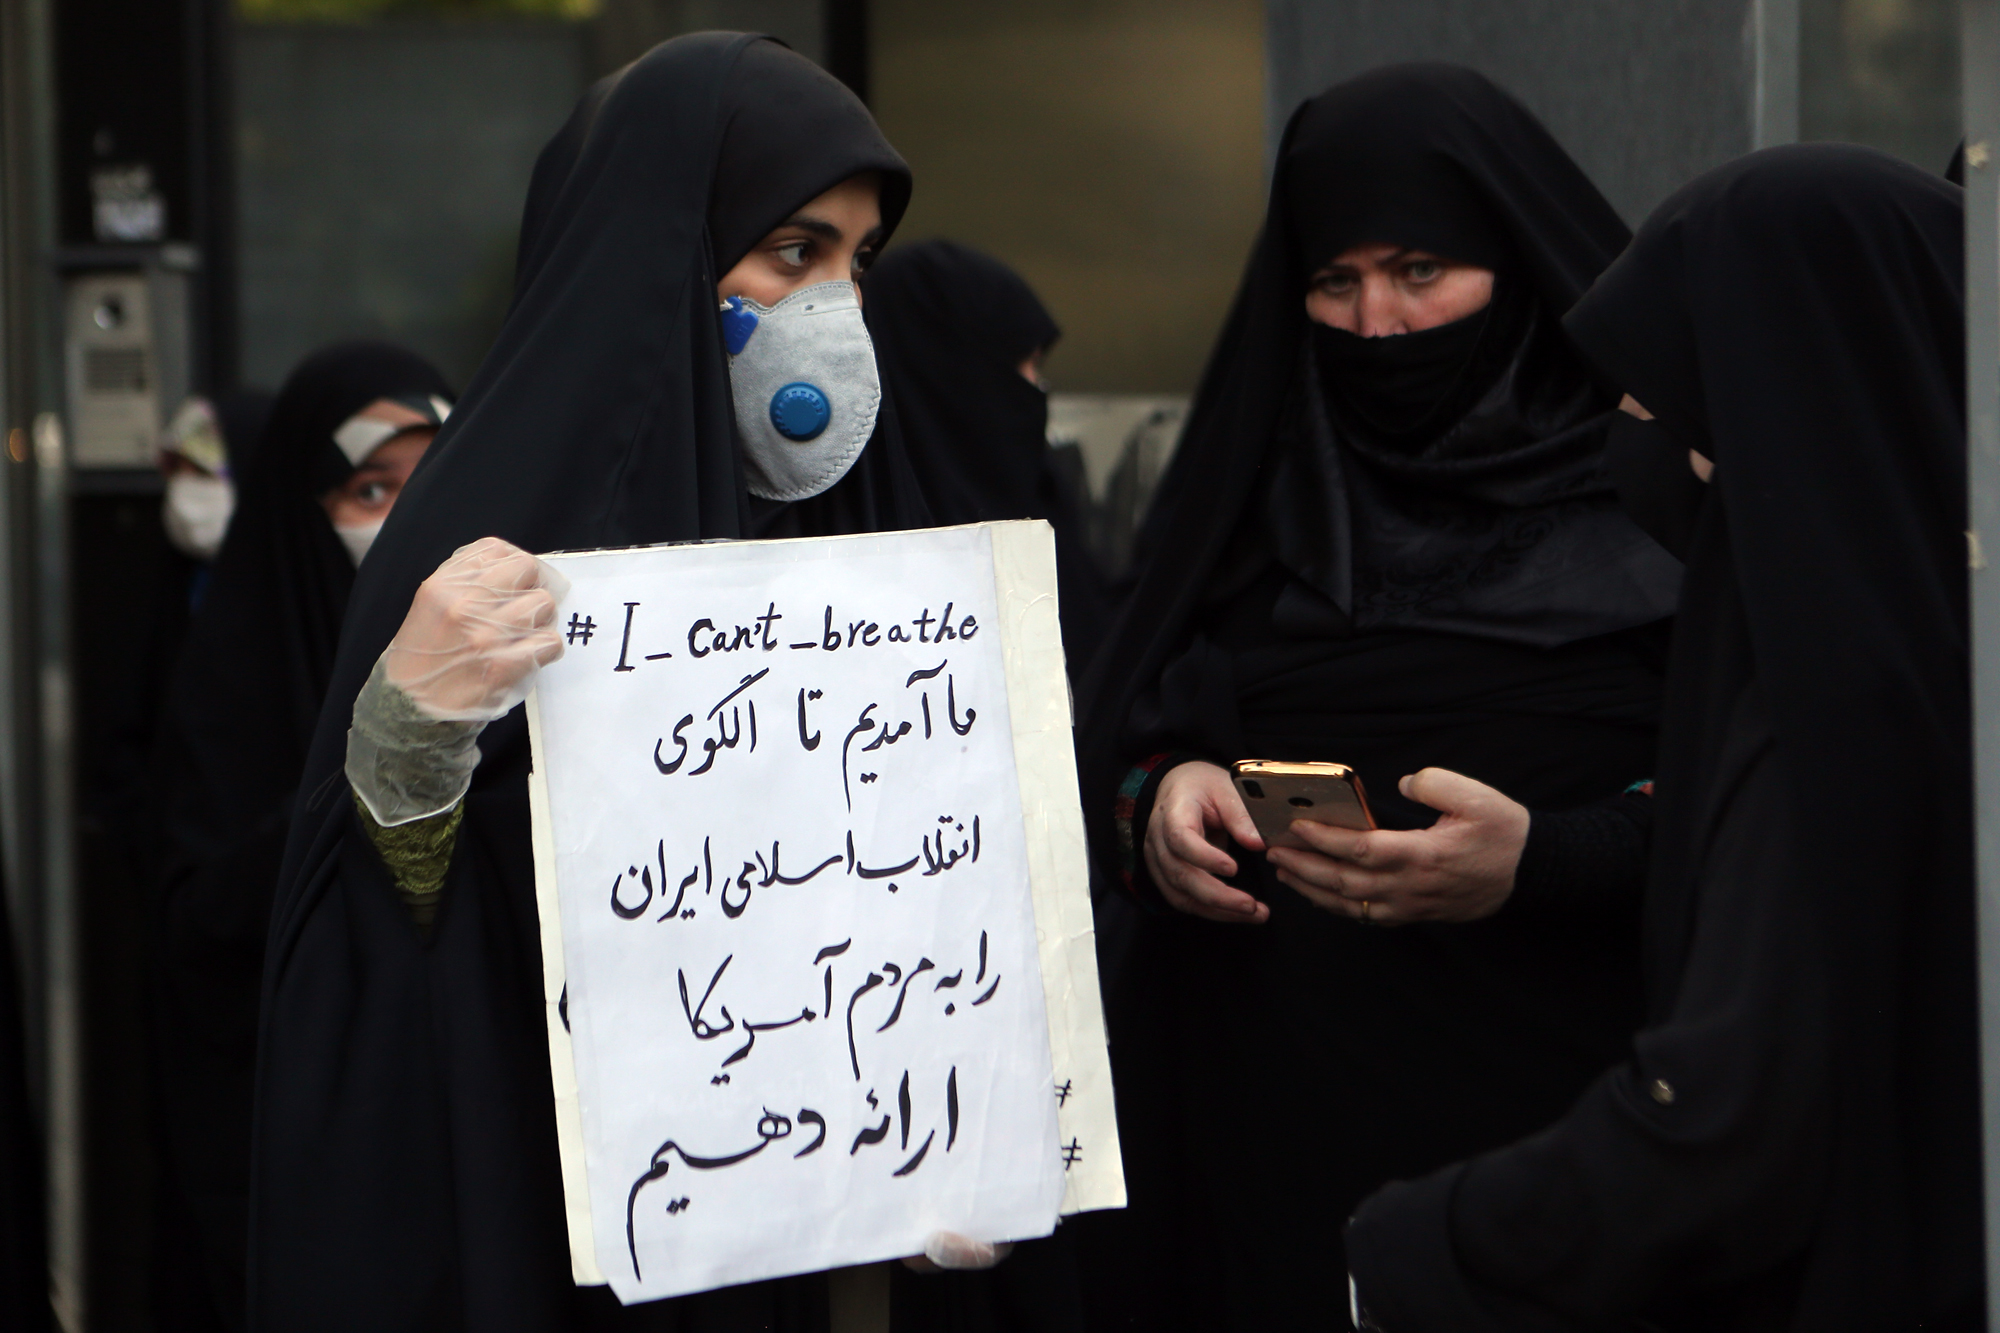 # I_can't_breathe
ما آمدیم تا الگوی
انقلاب اسلامی ایران
را به مردم آمریکا
ارائه دهیم
#
#